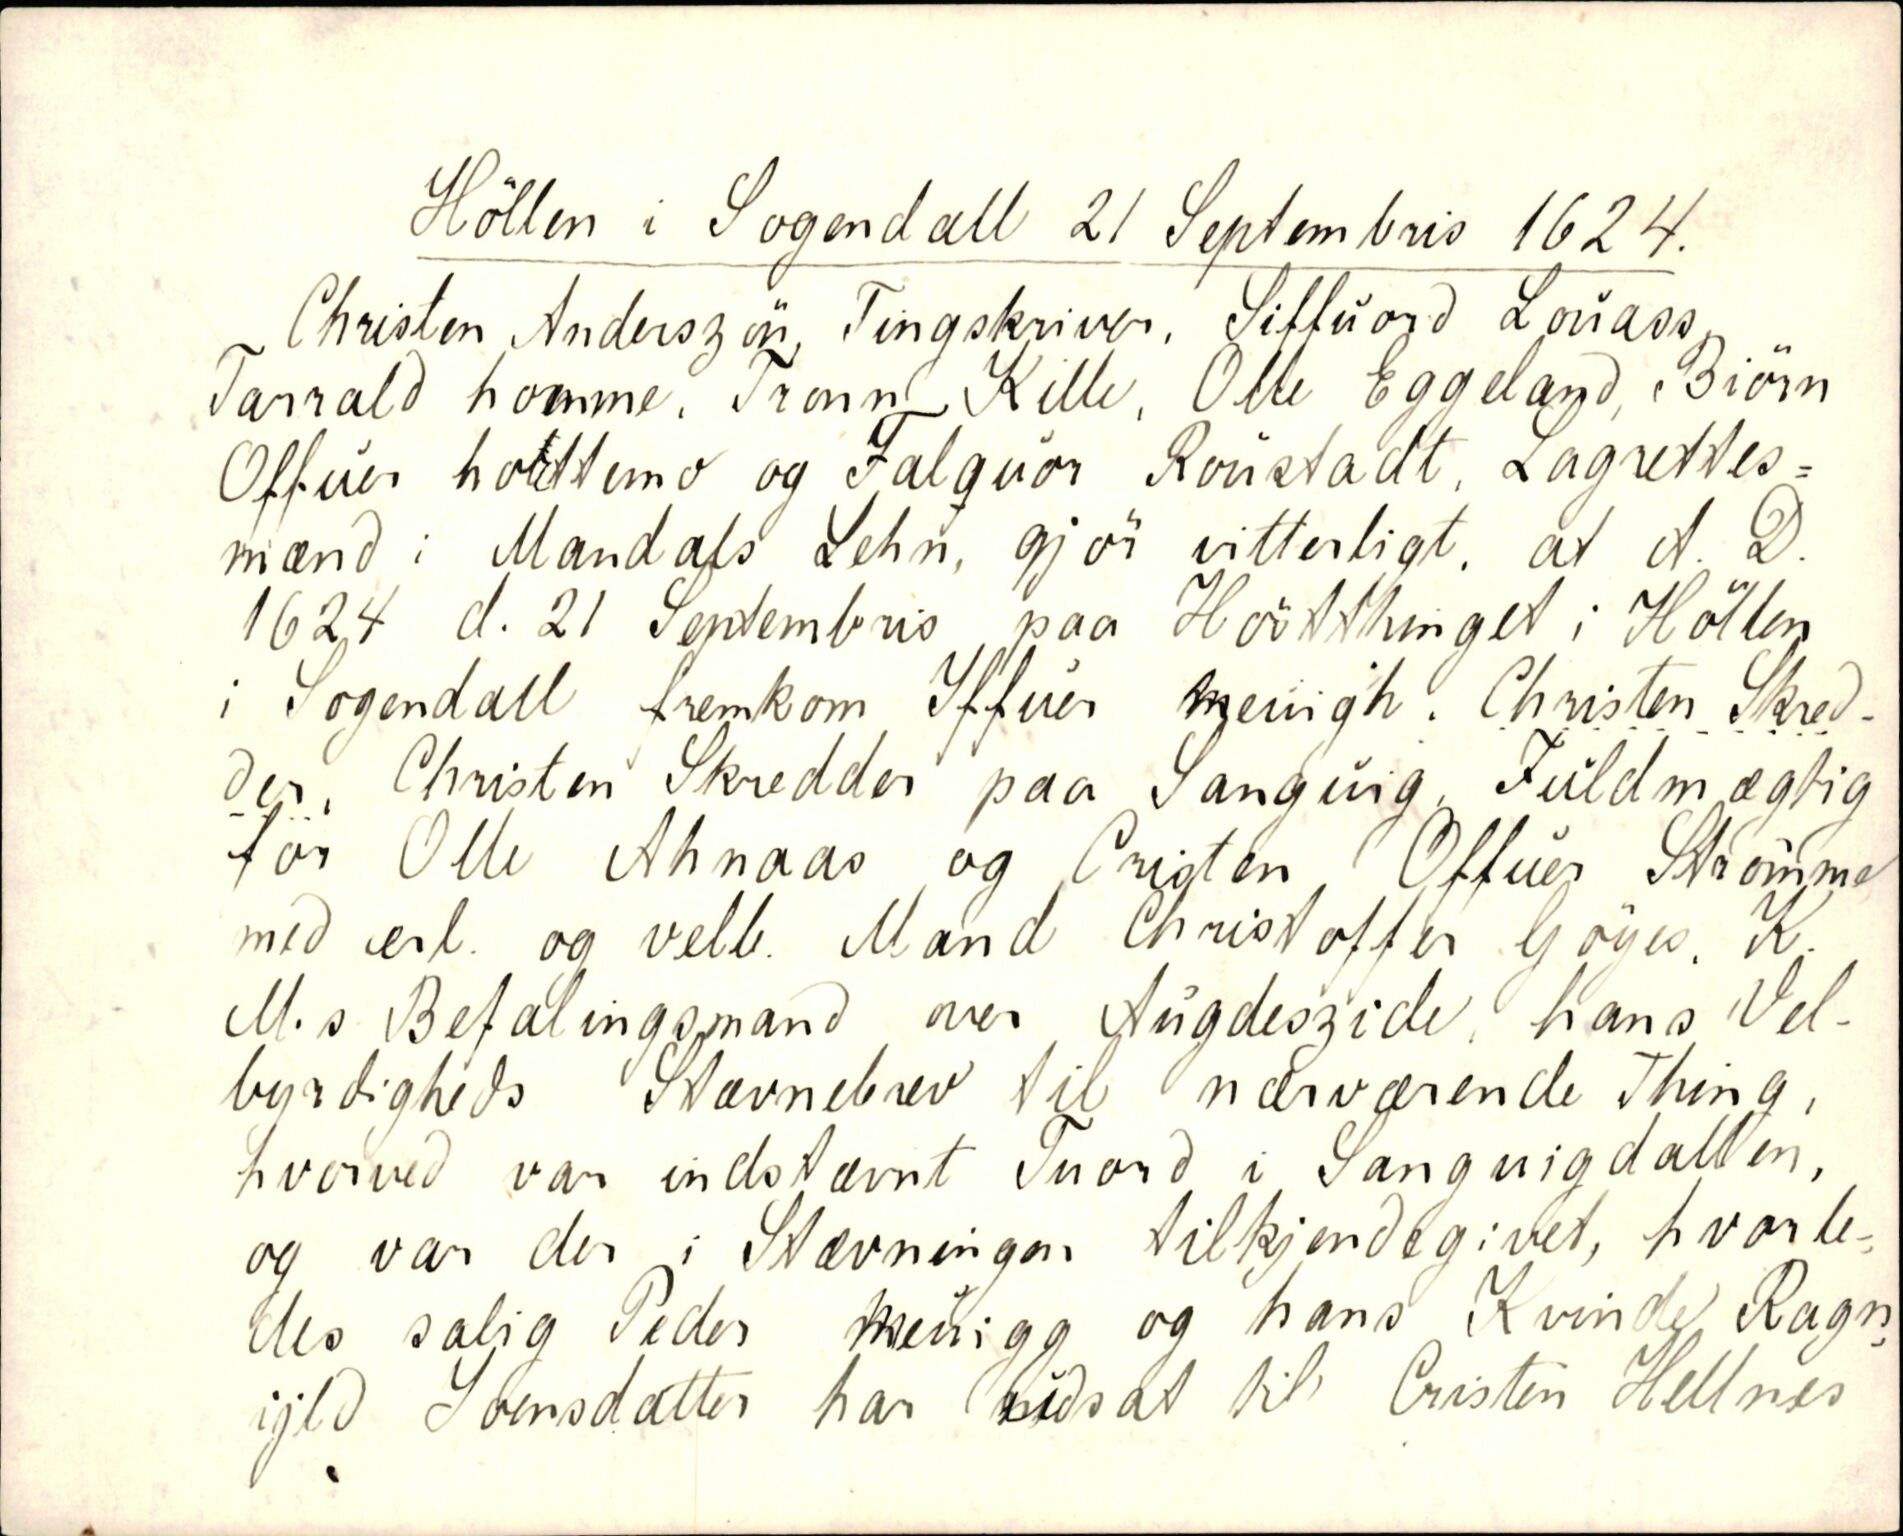 Höllen i Sogendall 21 Septembris 1624.
Christen Anderszön, Tingskriver, Siffuord Louass,
Tarrald homme, Tronn Kille, Olle Eggeland, Biörn
Offuer hottemo og Falquor Roustadt, Lagrettes=
mænd i Mandals Lehn, gjör vitterligt, at A. D.
1624 d. 21 Septembris paa Hörtthinget i Höllen
i Sogendall fremkom Iffuer meuigh. Christen Skred-
der, Christen Skredder paa Sanguig, Fuldmægtig
for Olle Ahnaas og Cristen Offuer Strömme
med erl. og velb. Mand Christoffer Göyes, K.
M.s Befalingsmand over Augdeszide, hans Vel-
byrdigheds Stævnebrev til nærværende Thing,
hvorved var indstævnt Tuord i Sanguigdallen,
og var der i Stævningen tilkjendegivet, hvorle-
des salig Peder meuigg og hans Kvinde Ragn
ijld Soensdatter har udsat til Cristen Hellnes